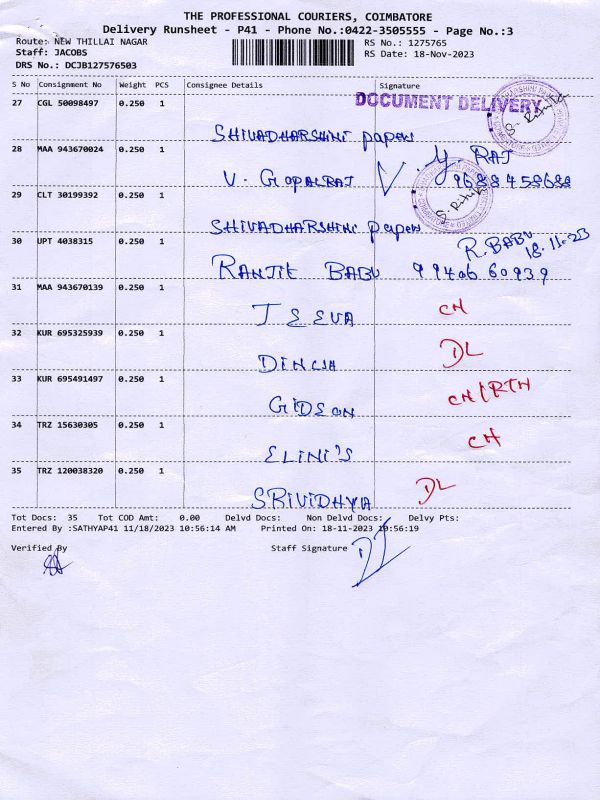 THE PROFESSIONAL COURIERS, COIMBATORE
Delivery Runsheet - P41 - Phone No.:0422-3505555 - Page No.:3
Route: NEW THILLAI NAGAR RS No.: 1275765
Staff: JACOBS RS Date: 18-Nov-2023
DRS No.: DCJB127576503
S No Consignment No Weight PCS Consignee Details Signature
27 CGL 50098497 0.250 1 DOCUMENT DELIVERY
SHIVADHARSHINI papers
28 MAA 943670024 0.250 1 Y. RAJ
V. GOPALRAJ 9688458688
29 CLT 30199392 0.250 1
SHIVADHARSHINI papers
30 UPT 4038315 0.250 1 R. BABU 18.11.23
RANJIT BABU 9940660939
31 MAA 943670139 0.250 1
JEEVA CH
32 KUR 695325939 0.250 1
DINESH DL
33 KUR 695491497 0.250 1
GIDEON CH/RTN
34 TRZ 15630305 0.250 1
ELINI'S CH
35 TRZ 120038320 0.250 1
SRIVIDHYA DL
Tot Docs: 35 Tot COD Amt: 0.00 Delvd Docs: Non Delvd Docs: Delvy Pts:
Entered By :SATHYAP41 11/18/2023 10:56:14 AM Printed On: 18-11-2023 10:56:19
Verified By Staff Signature